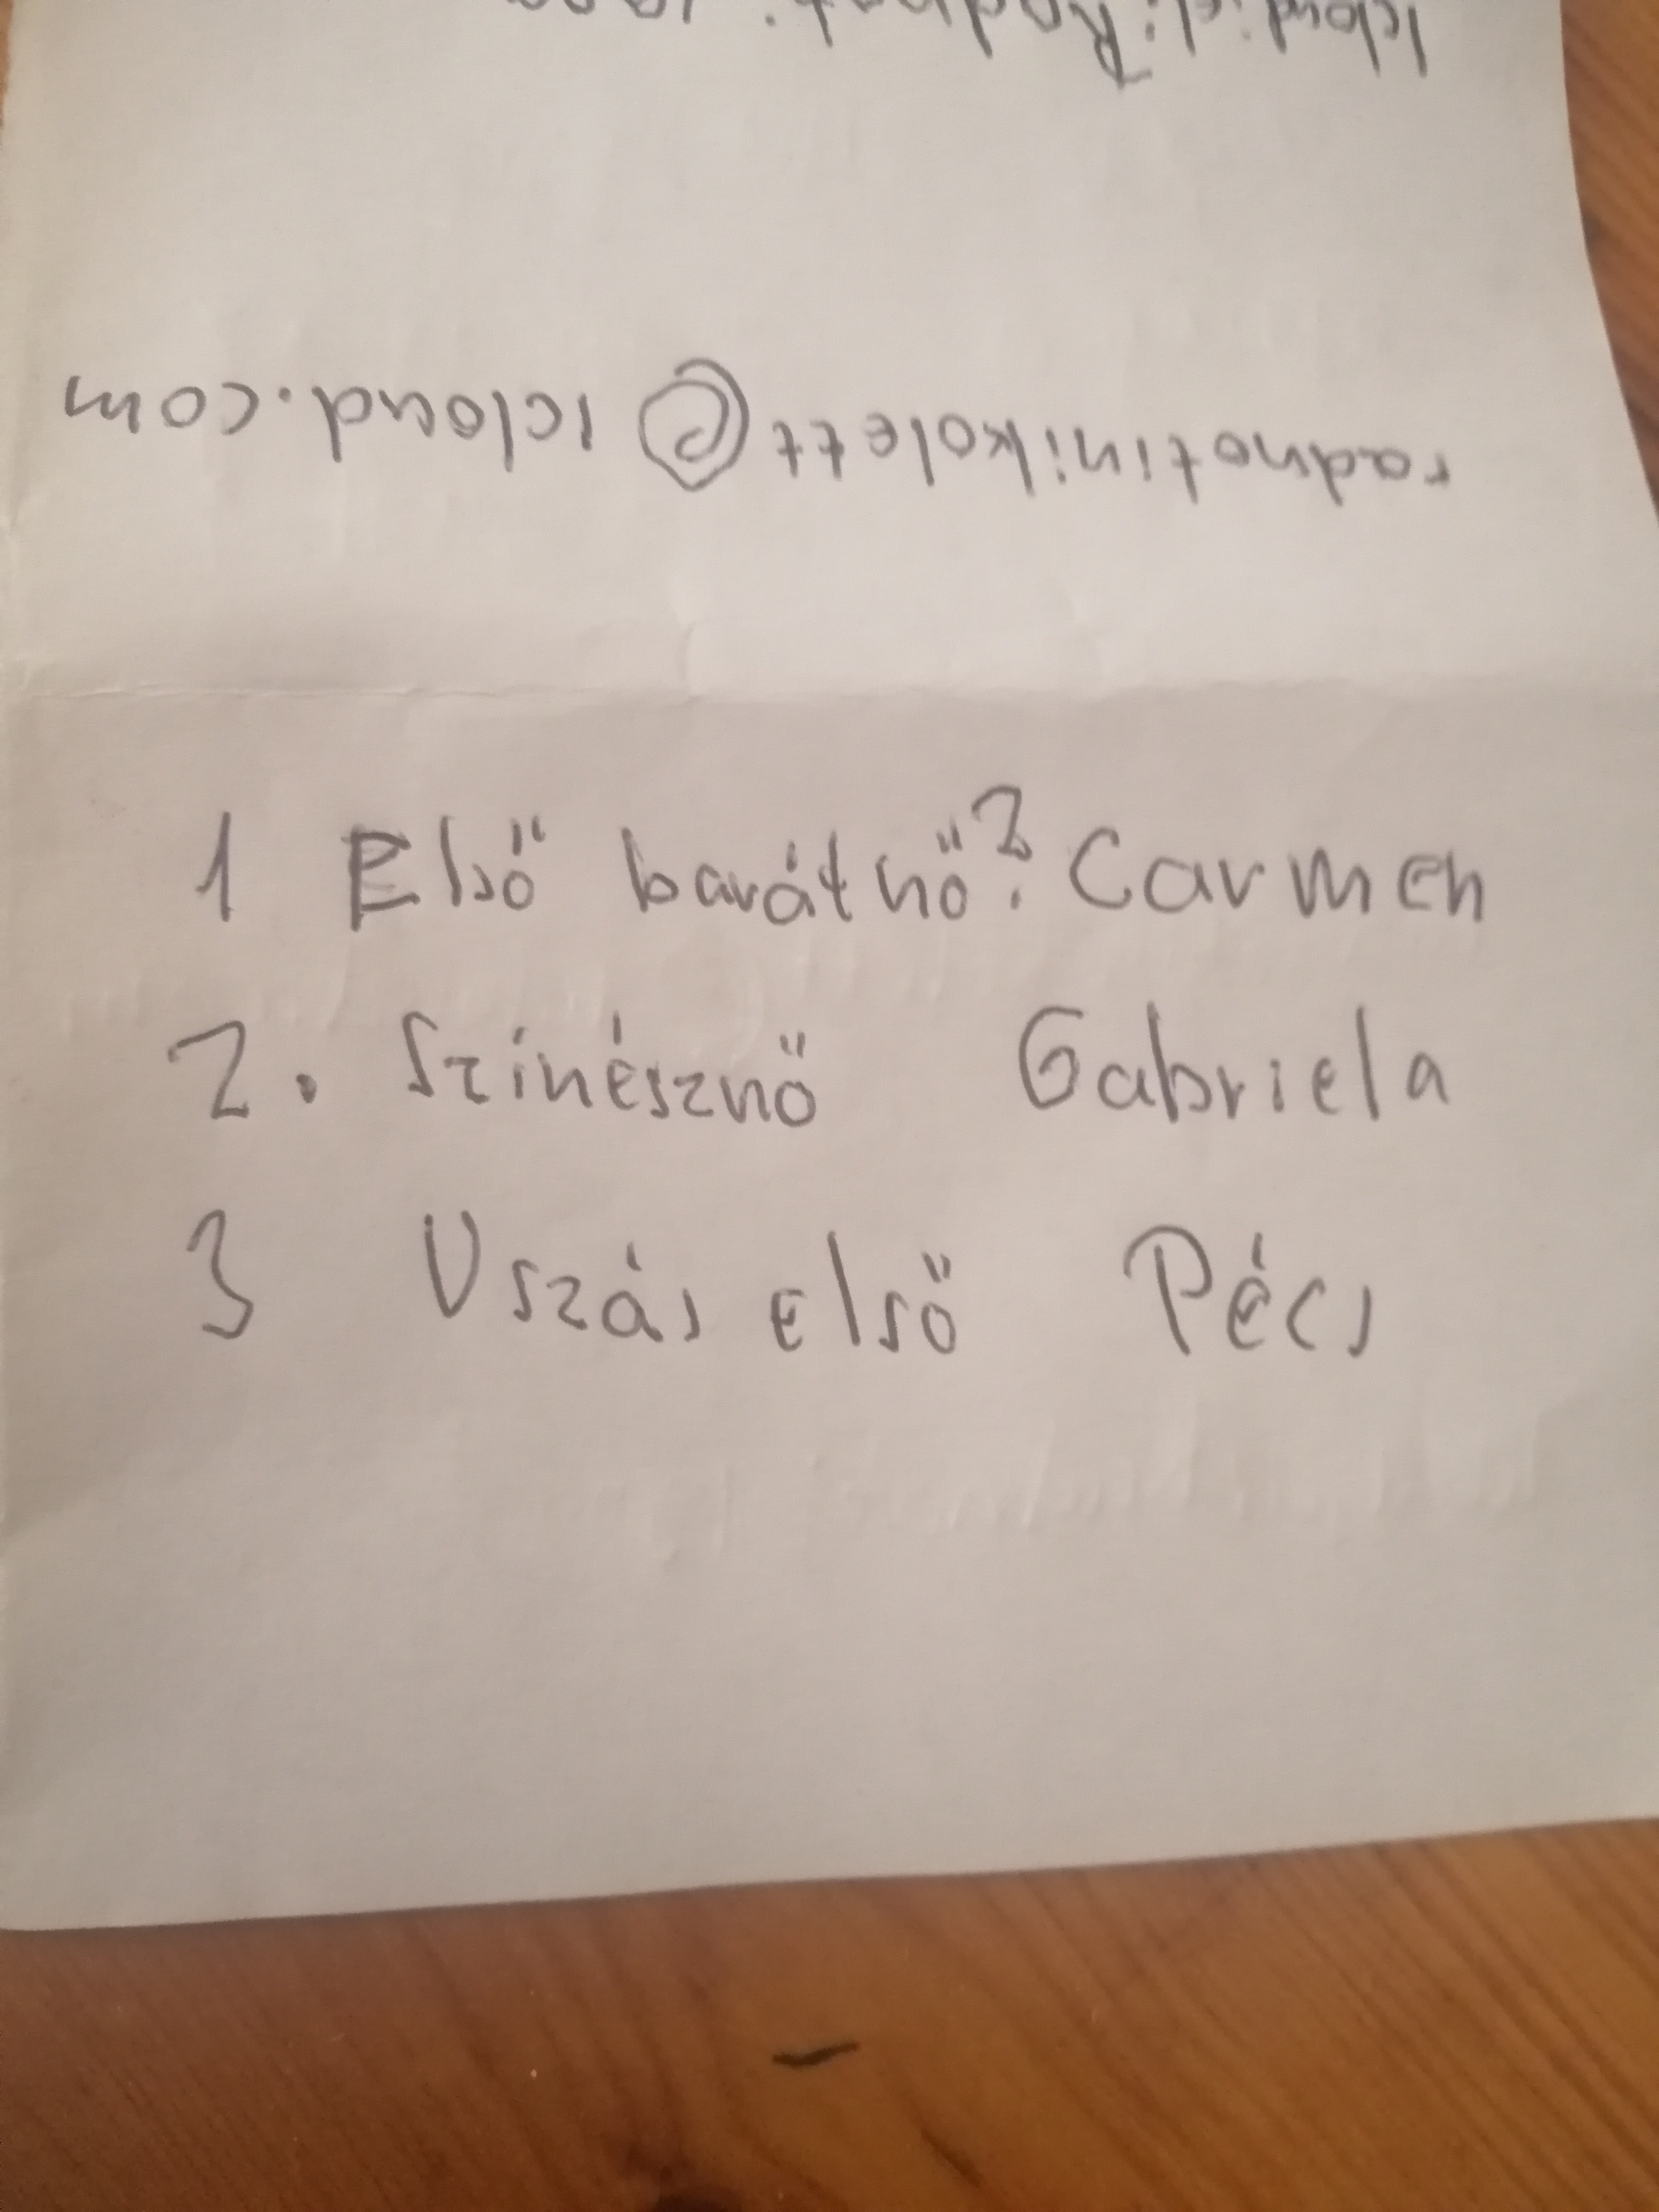 radnotinikolett@icloud.com
1 Első barátnő? Carmen
2. Színésznő Gabriela
3 Uszás első Pécs